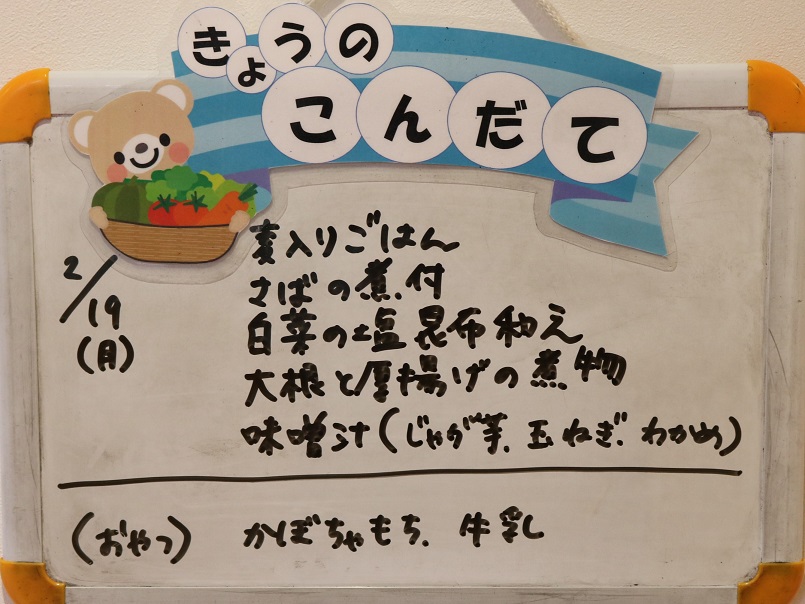 きょうの
こんだて
2/19
(月)
麦入りごはん
さばの煮付
白菜の塩昆布和え
大根と厚揚げの煮物
味噌汁(じゃが芋、玉ねぎ、わかめ)
(おやつ) かぼちゃもち、牛乳